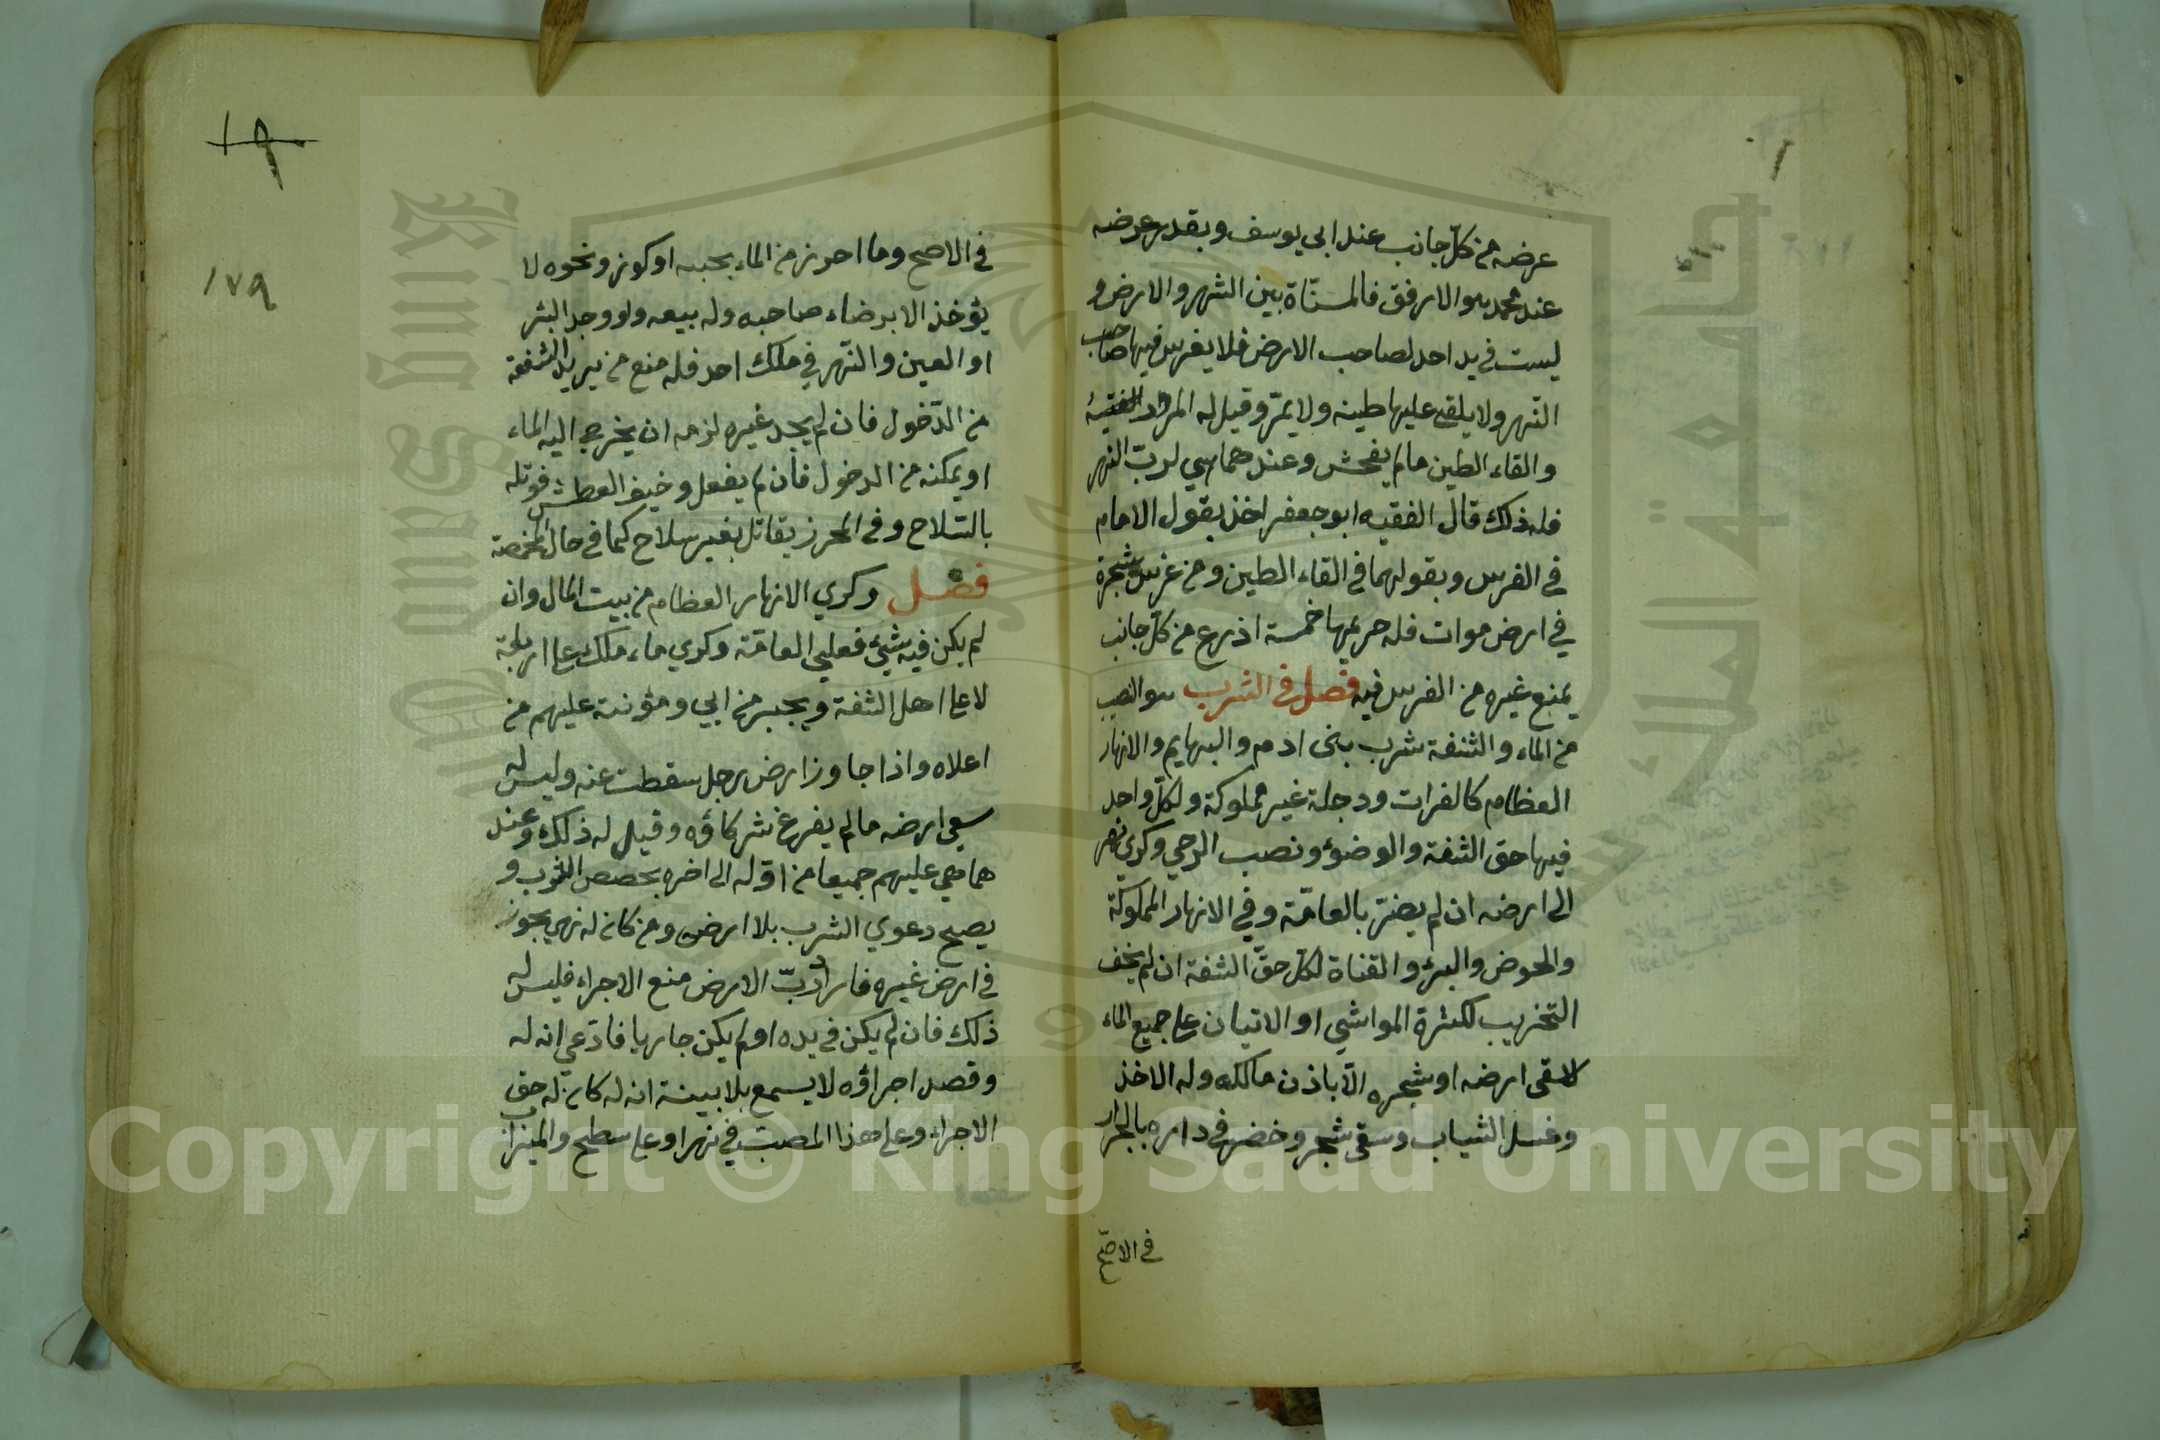 عرضه من كل جانب عند ابي يوسف وبقدر عرضه
عند محمد هو الارفق فالمسناة بين النهر والارض و
ليست في يد احد لصاحب الارض فلا يغرس فيها صاحب
النهر ولا يلقي عليها طينه ولا يمر وقيل له المرور
والقاء الطين مالم يفحش وعندهما هي لرب النهر
فله ذلك قال الفقيه ابو جعفر اخذ بقول الامام
في الغرس وبقولهما في القاء الطين ومن غرس شجرة
في ارض موات فله حريمها خمسة اذرع من كل جانب
يمنع غيره من الغرس فيه فصل في الشرب هو النصيب
من الماء والشفة شرب بنى ادم والبهايم والانهار
العظام كالفرات ودجلة غير مملوكة ولكل واحد
فيها حق الشفة والوضوء ونصب الرحي وكري نهر
الى ارضه ان لم يضر بالعامة وفي الانهار المملوكة
والحوض والبئر والقناة لكل حق الشفة ان لم يخف
التخريب لكثرة المواشي او الاتيان على جميع الماء
لا سقى ارضه او شجره الا باذن مالكه وله الاخذ
وغسل الثياب وسقى شجر وخضر في داره بالجرار
في الاصح
١٧٩
في الاصح وما احرز من الماء بحب او كوز ونحوه لا
يؤخذ الا برضاء صاحبه وله بيعه ولو وجد البئر
او العين والنهر في ملك احد فله منع من يريد الشفة
من الدخول فان لم يجد غيره لزمه ان يخرج اليه الماء
او يمكنه من الدخول فان لم يفعل وخيف العطش قوتله
بالسلاح وفي المحرز يقاتل بغير سلاح كما في حال المخمصة
فصل وكري الانهار العظام من بيت المال وان
لم يكن فيه شئ فعلي العامة وكري ماء ملك على اربابه
لا على اهل الشفة ويجبر من ابي ومؤنته عليهم من
اعلاه واذا جاوز ارض رجل سقطت عنه وليس له
سقي ارضه مالم يفرغ شركاؤه وقيل له ذلك وعند
هما هي عليهم جميعا من اوله الى اخره بحصص الشرب و
يصح دعوي الشرب بلا ارض ومن كان له نهر يجوز
في ارض غيره فاراد رب الارض منع الاجراء فليس له
ذلك فان لم يكن في يده او لم يكن جاريا فادعي انه له
وقصد اجراؤه لا يسمع بلا بينة انه له كان له حق
الاجراء وعلى هذا المصب في نهر او على سطح والميزاب
جامعة الملك سعود
King Saud University
Copyright © King Saud University